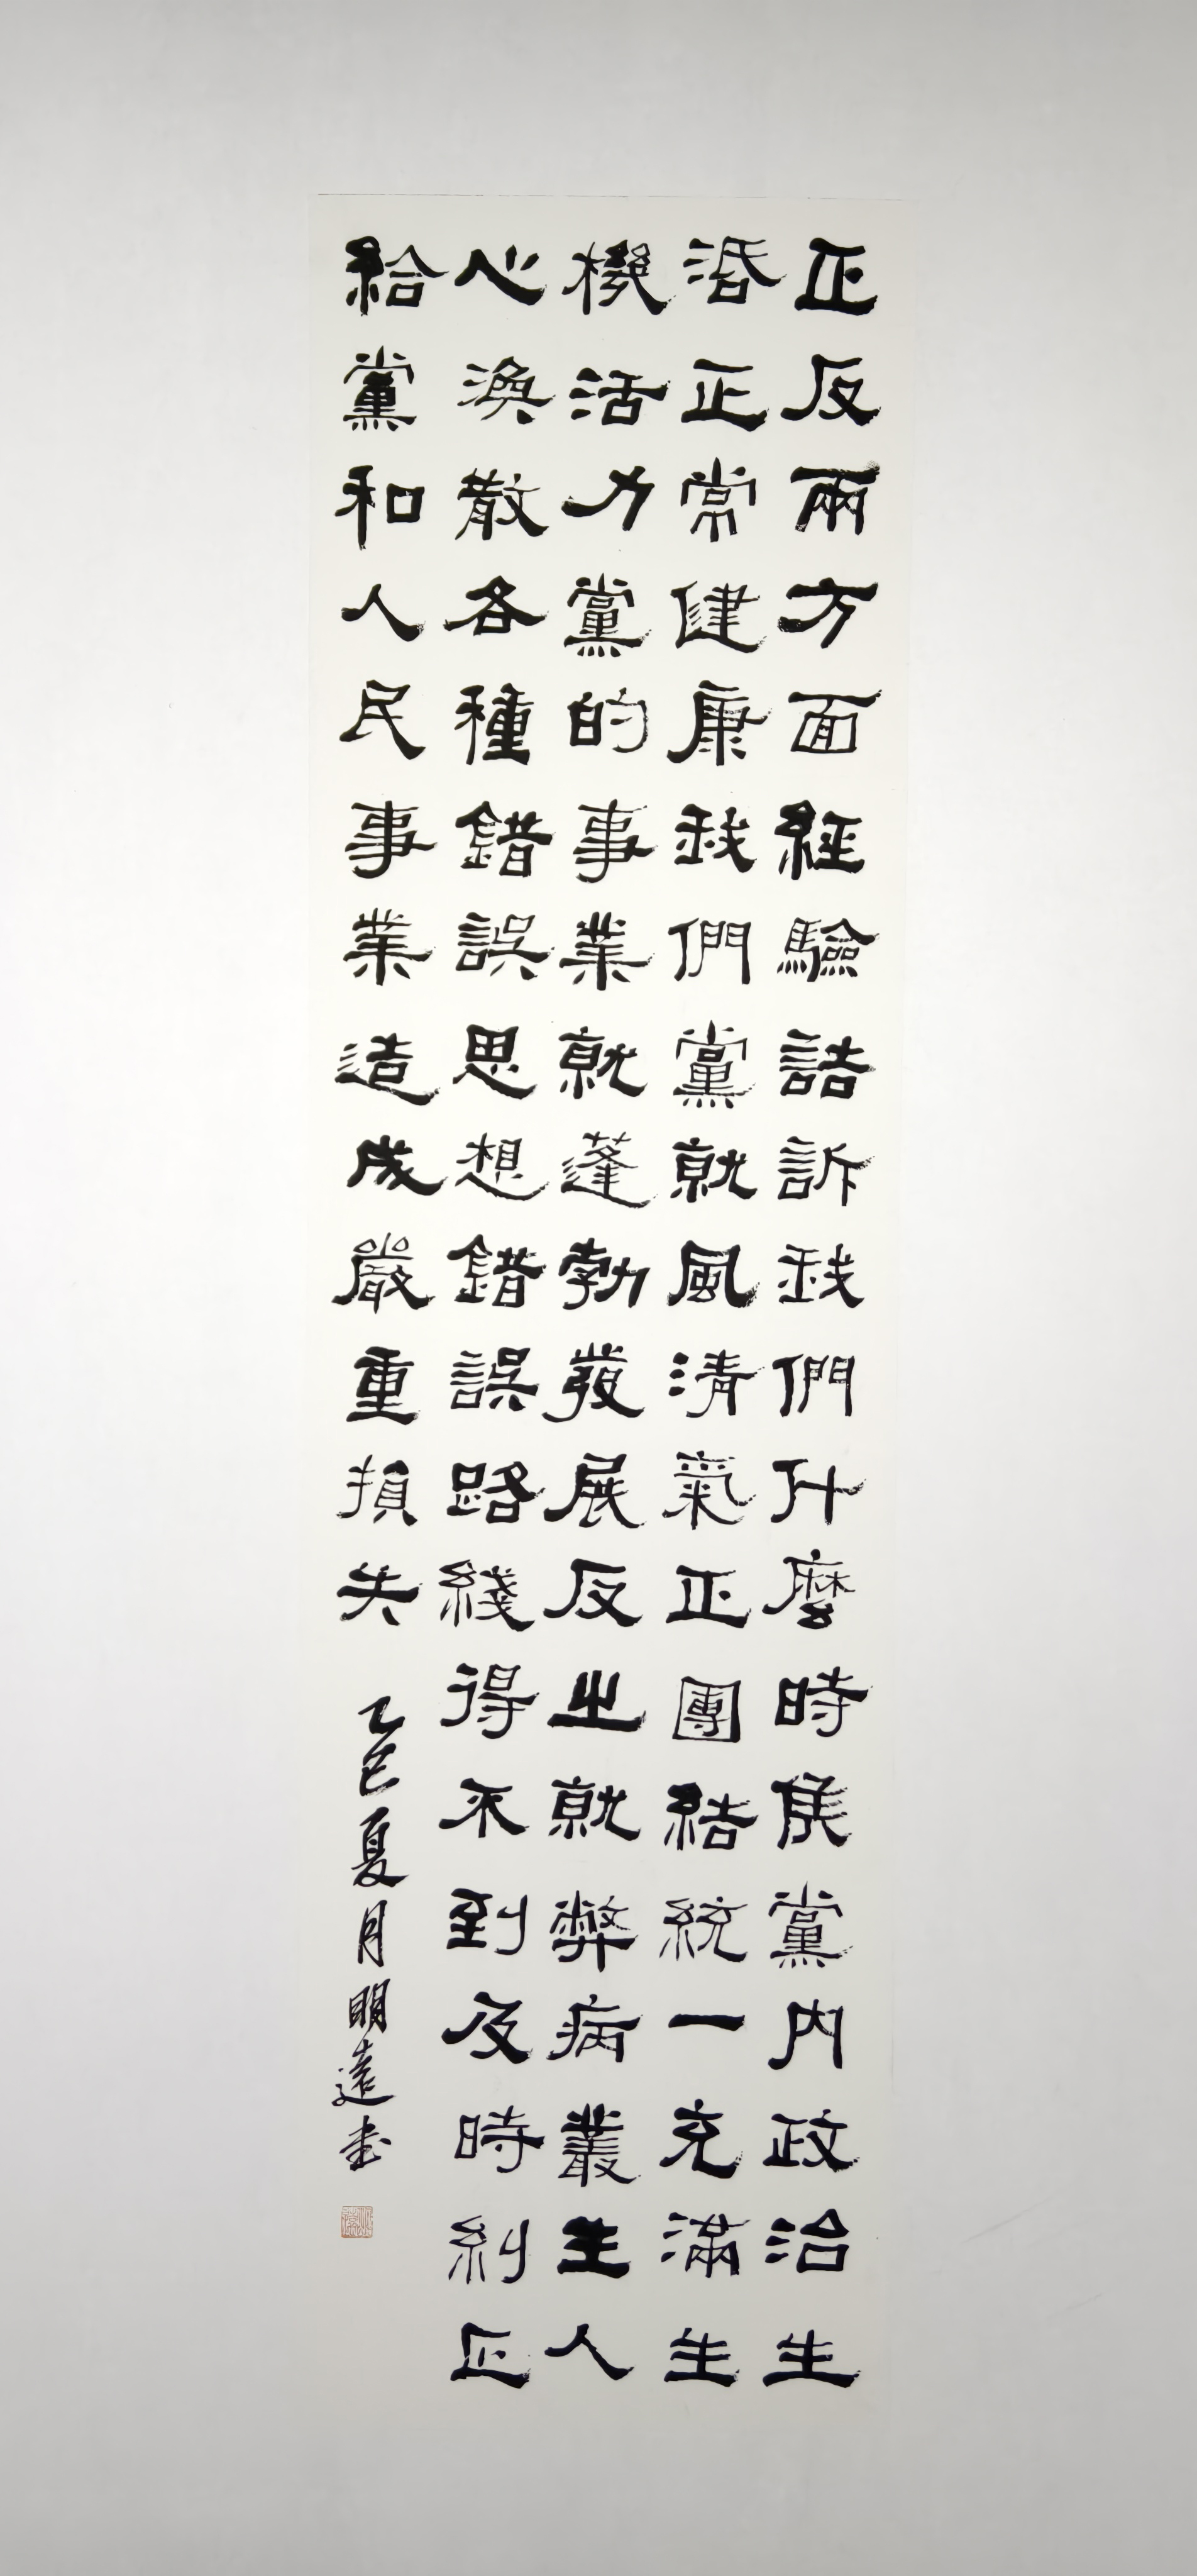 正反兩方面經驗誥訴我們什麼時候黨内政治生
活正常健康我們黨就風清氣正團結統一充滿生
機活力黨的事業就蓬勃發展反之就弊病叢生人
心渙散各種錯誤思想錯誤路綫得不到及時糾正
給黨和人民事業造成嚴重損失
乙巳夏月明遠書